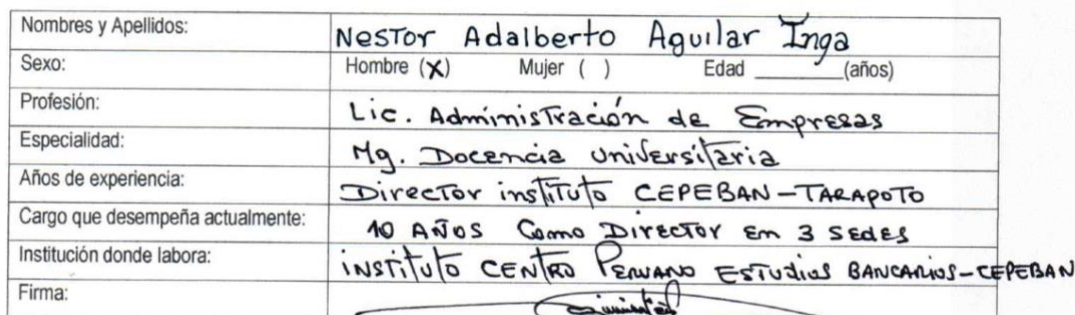 Nombres y Apellidos: Nestor Adalberto Aguilar Inga
Sexo: Hombre (X) Mujer ( ) Edad ________(años)
Profesión: Lic. Administración de Empresas
Especialidad: Mg. Docencia Universitaria
Años de experiencia: Director instituto CEPEBAN-TARAPOTO
Cargo que desempeña actualmente: 10 AÑOS Como Director Em 3 Sedes
Institución donde labora: instituto CENTRO PERUANO ESTUDIOS BANCARIOS-CEPEBAN
Firma: